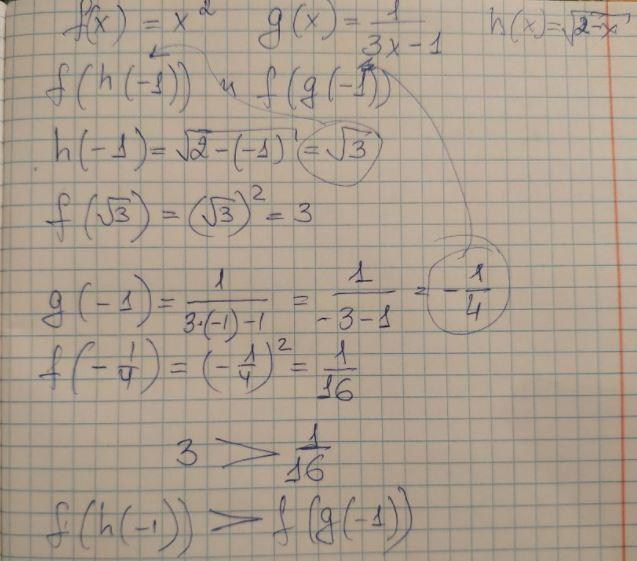 f(x) = x² g(x) = 1/(3x-1) h(x) = √(2-x)
f(h(-1)) и f(g(-1))
h(-1) = √(2-(-1)) = √3
f(√3) = (√3)² = 3
g(-1) = 1/(3·(-1)-1) = 1/(-3-1) = -1/4
f(-1/4) = (-1/4)² = 1/16
3 > 1/16
f(h(-1)) > f(g(-1))